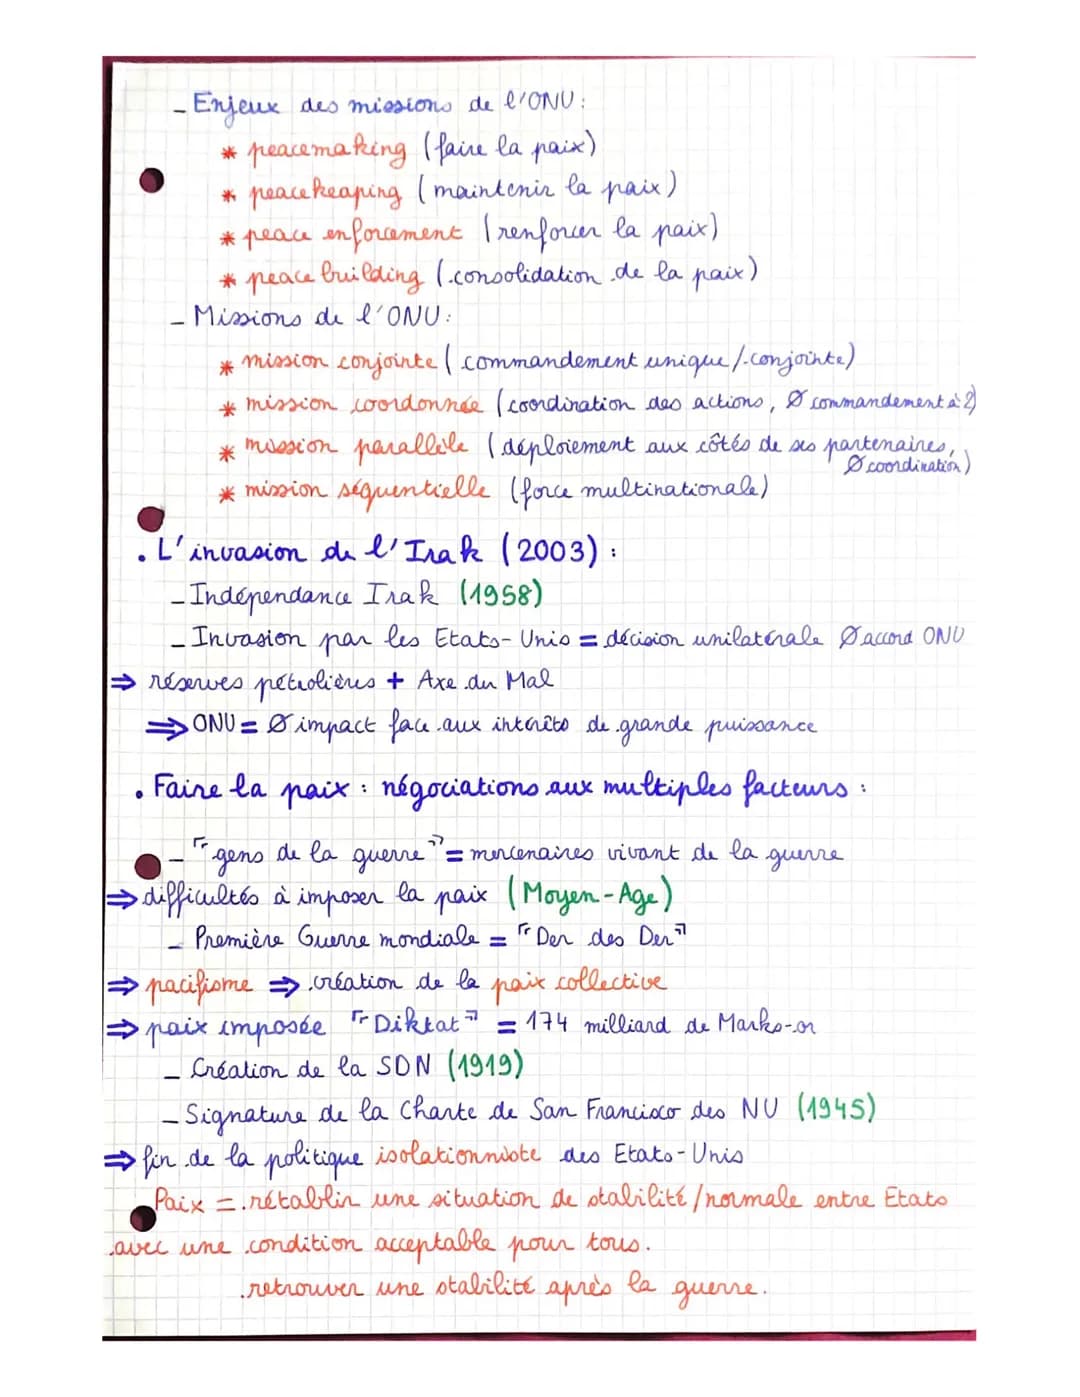 - Enjeux des missions de l'ONU :
* peacemaking (faire la paix)
* peacekeaping (maintenir la paix)
* peace enforcement (renforcer la paix)
* peace building (consolidation de la paix)
- Missions de l'ONU :
* mission conjointe (commandement unique/conjointe)
* mission coordonnée (coordination des actions, Ø commandement à 2)
* mission parallèle (déploiement aux côtés de ses partenaires,
Ø coordination)
* mission séquentielle (force multinationale)
• L'invasion de l'Irak (2003) :
- Indépendance Irak (1958)
- Invasion par les Etats-Unis = décision unilatérale Ø accord ONU
⇒ réserves pétrolières + Axe du Mal
⇒ ONU = Ø impact face aux intérêts de grande puissance
• Faire la paix : négociations aux multiples facteurs :
- "gens de la guerre" = mercenaires vivant de la guerre
⇒ difficultés à imposer la paix (Moyen-Age)
- Première Guerre mondiale = "Der des Der"
⇒ pacifisme ⇒ création de la paix collective
⇒ paix imposée "Diktat" = 174 milliard de Marks-or
- Création de la SDN (1919)
- Signature de la Charte de San Francisco des NU (1945)
⇒ fin de la politique isolationniste des Etats-Unis
Paix = rétablir une situation de stabilité/normale entre Etats
avec une condition acceptable pour tous.
retrouver une stabilité après la guerre.